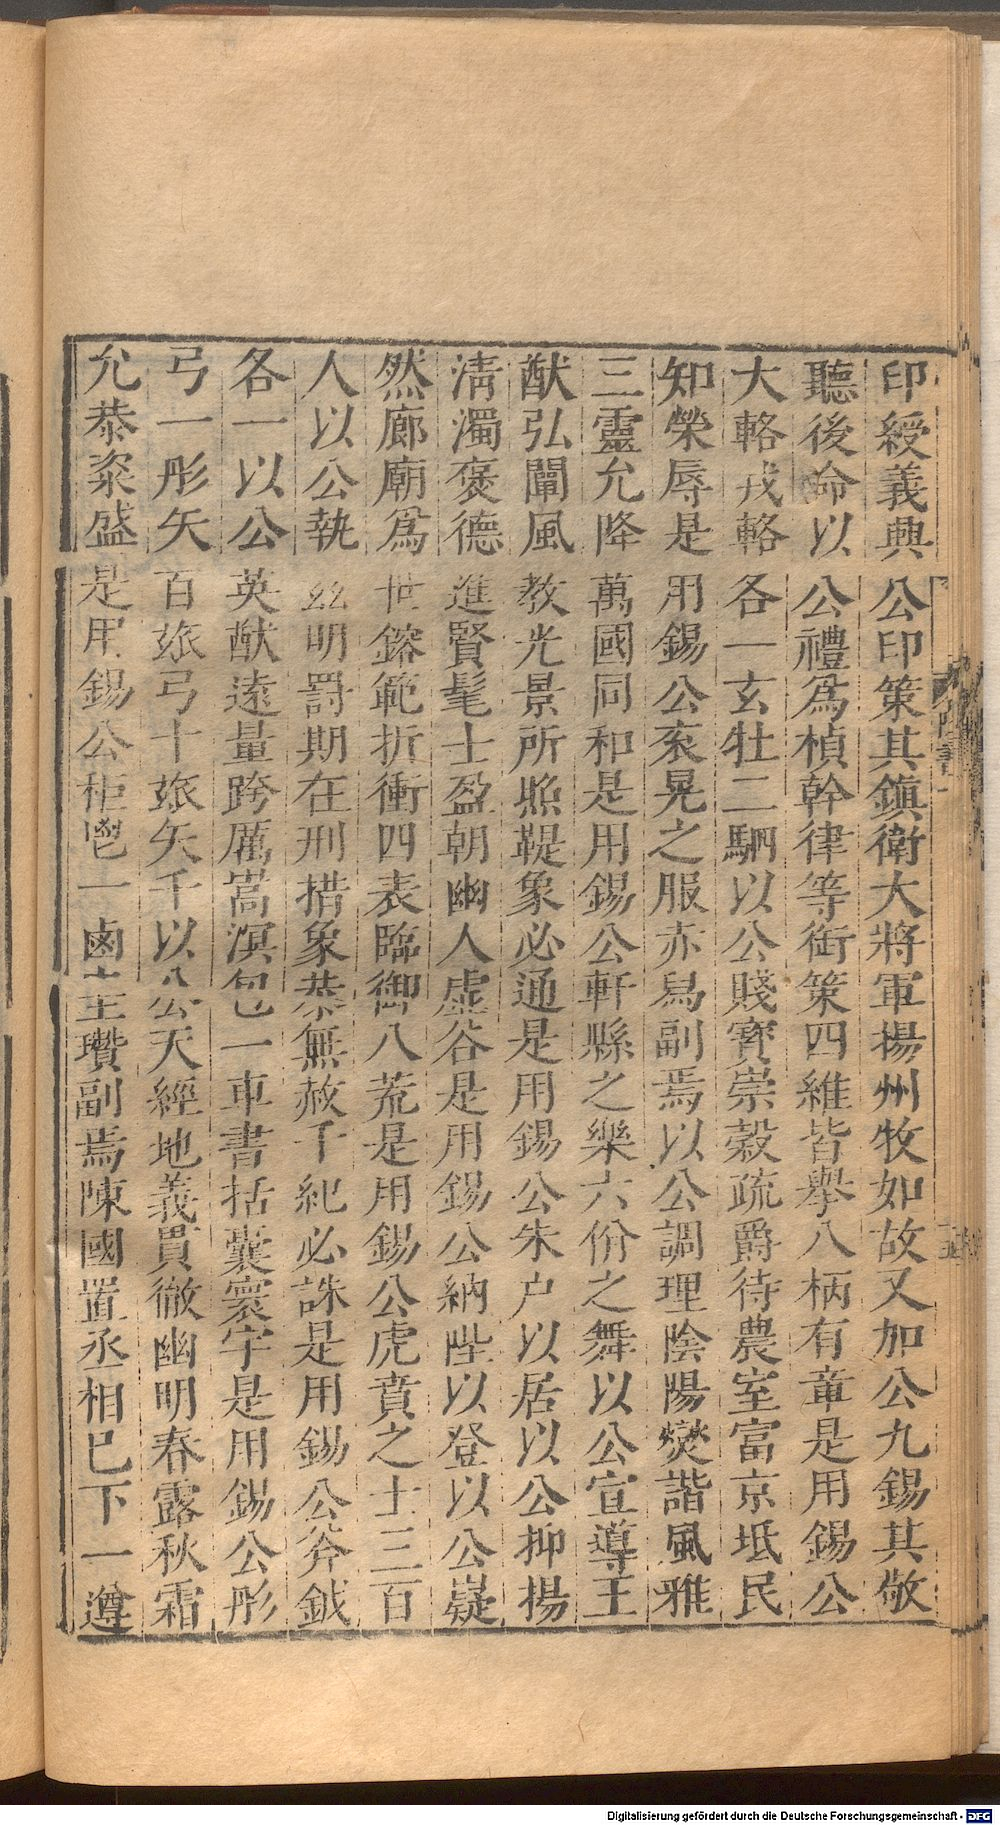 印綬義興公印策其鎭衛大將軍揚州牧如故又加公九錫其敬
聽後命以公禮爲楨幹律等銜策四維皆舉八柄有章是用錫公
大輅戎輅各一玄牡二駟以公賤寶崇穀疏爵待農室富京坻民
知榮辱是用錫公衮冕之服赤舄副焉以公調理陰陽燮諧風雅
三靈允降萬國同和是用錫公軒縣之樂六佾之舞以公宣導王
猷弘闡風教光景所照鞮象必通是用錫公朱户以居以公抑揚
淸濁褒德進賢髦士盈朝幽人虛谷是用錫公納陛以登以公嶷
然廊廟爲世鎔範折衝四表臨御八荒是用錫公虎賁之士三百
人以公執茲明罰期在刑措象恭無赦干紀必誅是用錫公斧鉞
各一以公英猷遠量跨厲嵩溟包一車書括囊寰宇是用錫公彤
弓一彤矢百玈弓十玈矢千以公天經地義貫徹幽明春露秋霜
允恭粢盛是用錫公秬鬯一卣圭瓚副焉陳國置丞相已下一遵
陳書一
Digitalisierung gefördert durch die Deutsche Forschungsgemeinschaft - DFG